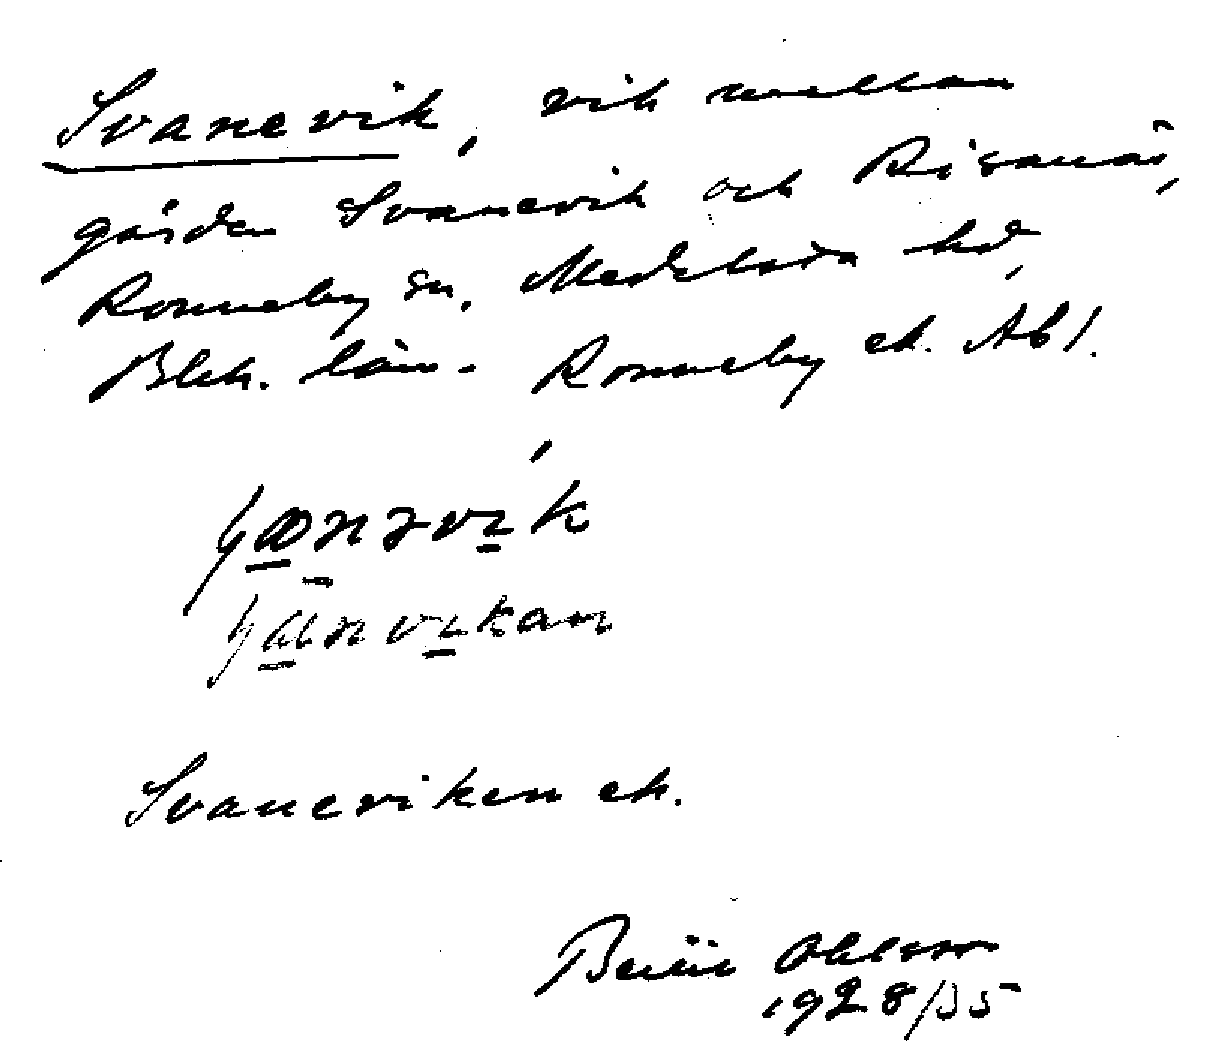 Svanevik, vik mellan
gården Svanevik och Risanäs,
Ronneby sn. Medelsta hd,
Blek. län. Ronneby ek. Ab1.
Svaneviken ek.
Bertil Ohlsson
1928/35